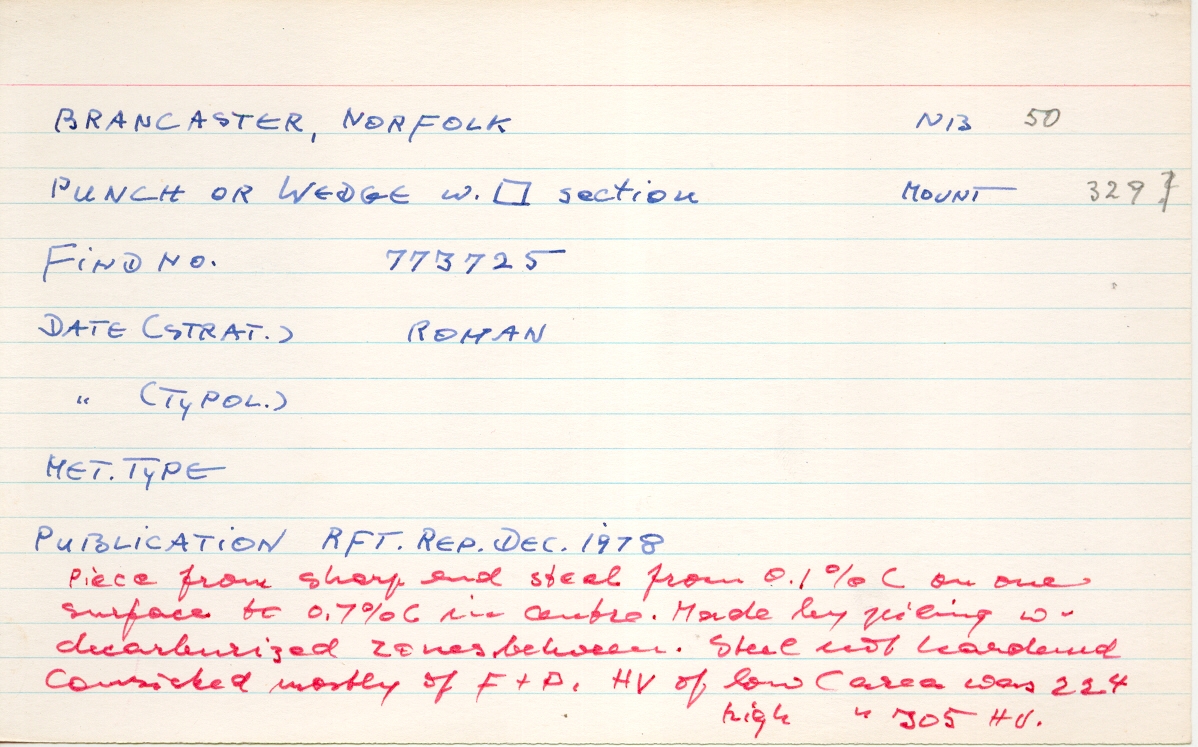 BRANCASTER, NORFOLK NIB 50
PUNCH OR WEDGE w. □ section MOUNT 3297
FIND NO. 773725
DATE (STRAT.) ROMAN
" (TYPOL.)
MET. TYPE
PUBLICATION RFT. REP. DEC. 1978
Piece from sharp end steel from 0.1% C on one
surface to 0.7% C in centre. Made by piling w-
decarburized zones between. Steel not hardened
Consisted mostly of F + P. HV of low C area was 224
high " 305 HV.